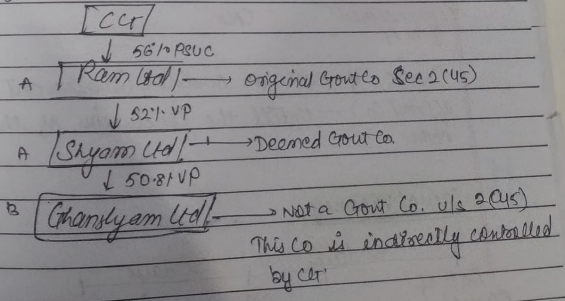 CG
↓ 56% PSUC
A Ram Ltd → original Govt Co Sec 2(45)
↓ 52% VP
A Shyam Ltd → Deemed Govt Co.
↓ 50.8% VP
B Ghanshyam Ltd → Not a Govt Co. u/s 2(45)
This Co is indirectly controlled
by CG.